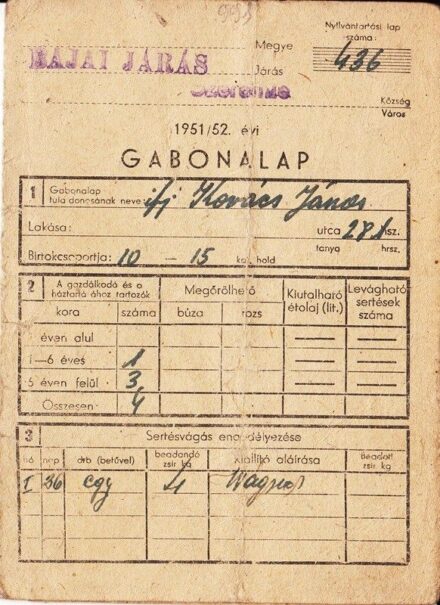 991
Nyilvántartási lap
száma:
436
Megye
BAJAI JÁRÁS
Járás
Szeremle
Község
Város
1951/52. évi
GABONALAP
1 Gabonalap
tulajdonosának neve: ifj Kovács János
Lakása: utca 271 sz.
tanya hrsz.
Birtokcsoportja: 10 — 15 kat. hold
2 A gazdálkodó és a háztartásához tartozók Megőrölhető Kiutalható étolaj (lit.) Levágható sertések száma
kora száma búza rozs
éven alul
1—6 éves 1
6 éven felül 3
Összesen: 4
3 Sertésvágás engedélyezése
hó nap drb (betűvel) beadandó zsír kg Kiállító aláírása Beadott zsír kg
I 36 egy 4 Wagner